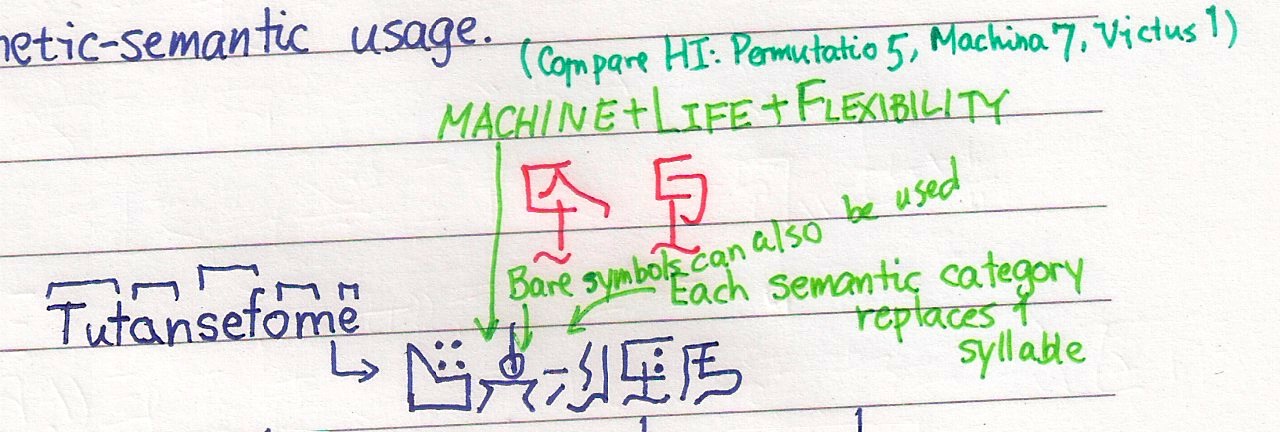 netic-semantic usage.
(Compare HI: Permutatio 5, Machina 7, Victus 1)
MACHINE+LIFE+FLEXIBILITY
Bare symbols can also be used
Each semantic category
replaces 1
syllable
Tutansefome